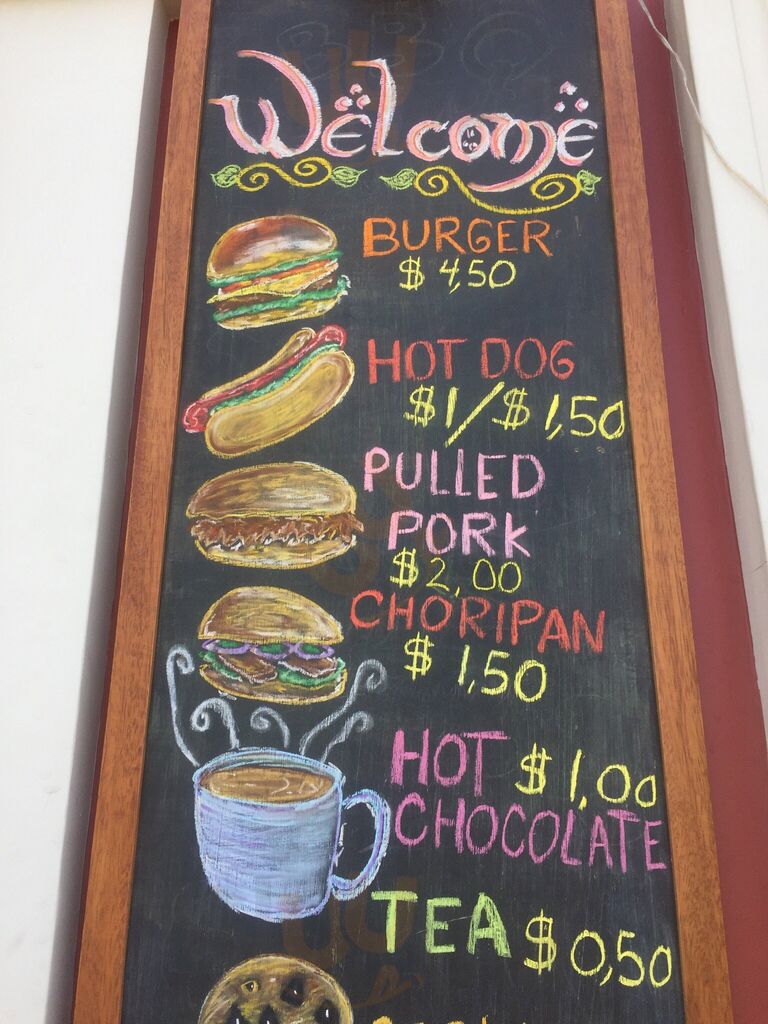 Welcome
BURGER
$ 4,50
HOT DOG
$1/$1,50
PULLED
PORK
$2,00
CHORIPAN
$ 1,50
HOT $1,00
CHOCOLATE
TEA $0,50